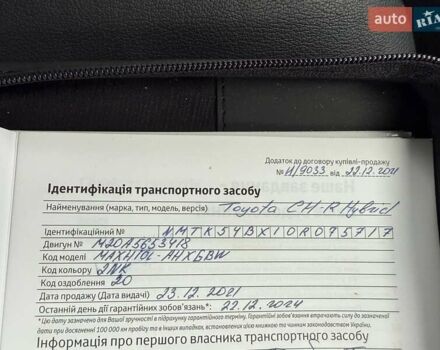 auto RIA
Додаток до договору купівлі-продажу
№ И/9033 від 22.12.2021
Ідентифікація транспортного засобу
Найменування (марка, тип, модель, версія) Toyota CH-R Hybrid
Ідентифікаційний № NMTK54BX10R075717
Двигун № M20A5653418
Код моделі MAXH10L-AHXGBW
Код кольору 2NK
Код оздоблення 20
Дата продажу (Дата видачі) 23.12.2021
Останній день дії гарантійних зобов'язань*: 22.12.2024
* Цю дату зазначено для Вашої зручності в підрахунку гарантійного терміну. Гарантійні зобов'язання втрачають силу до зазначеної
дати при досягненні 100 000 км пробігу та в інших випадках, встановлених цією книжкою та чинним законодавством України.
Інформація про першого власника транспортного засобу